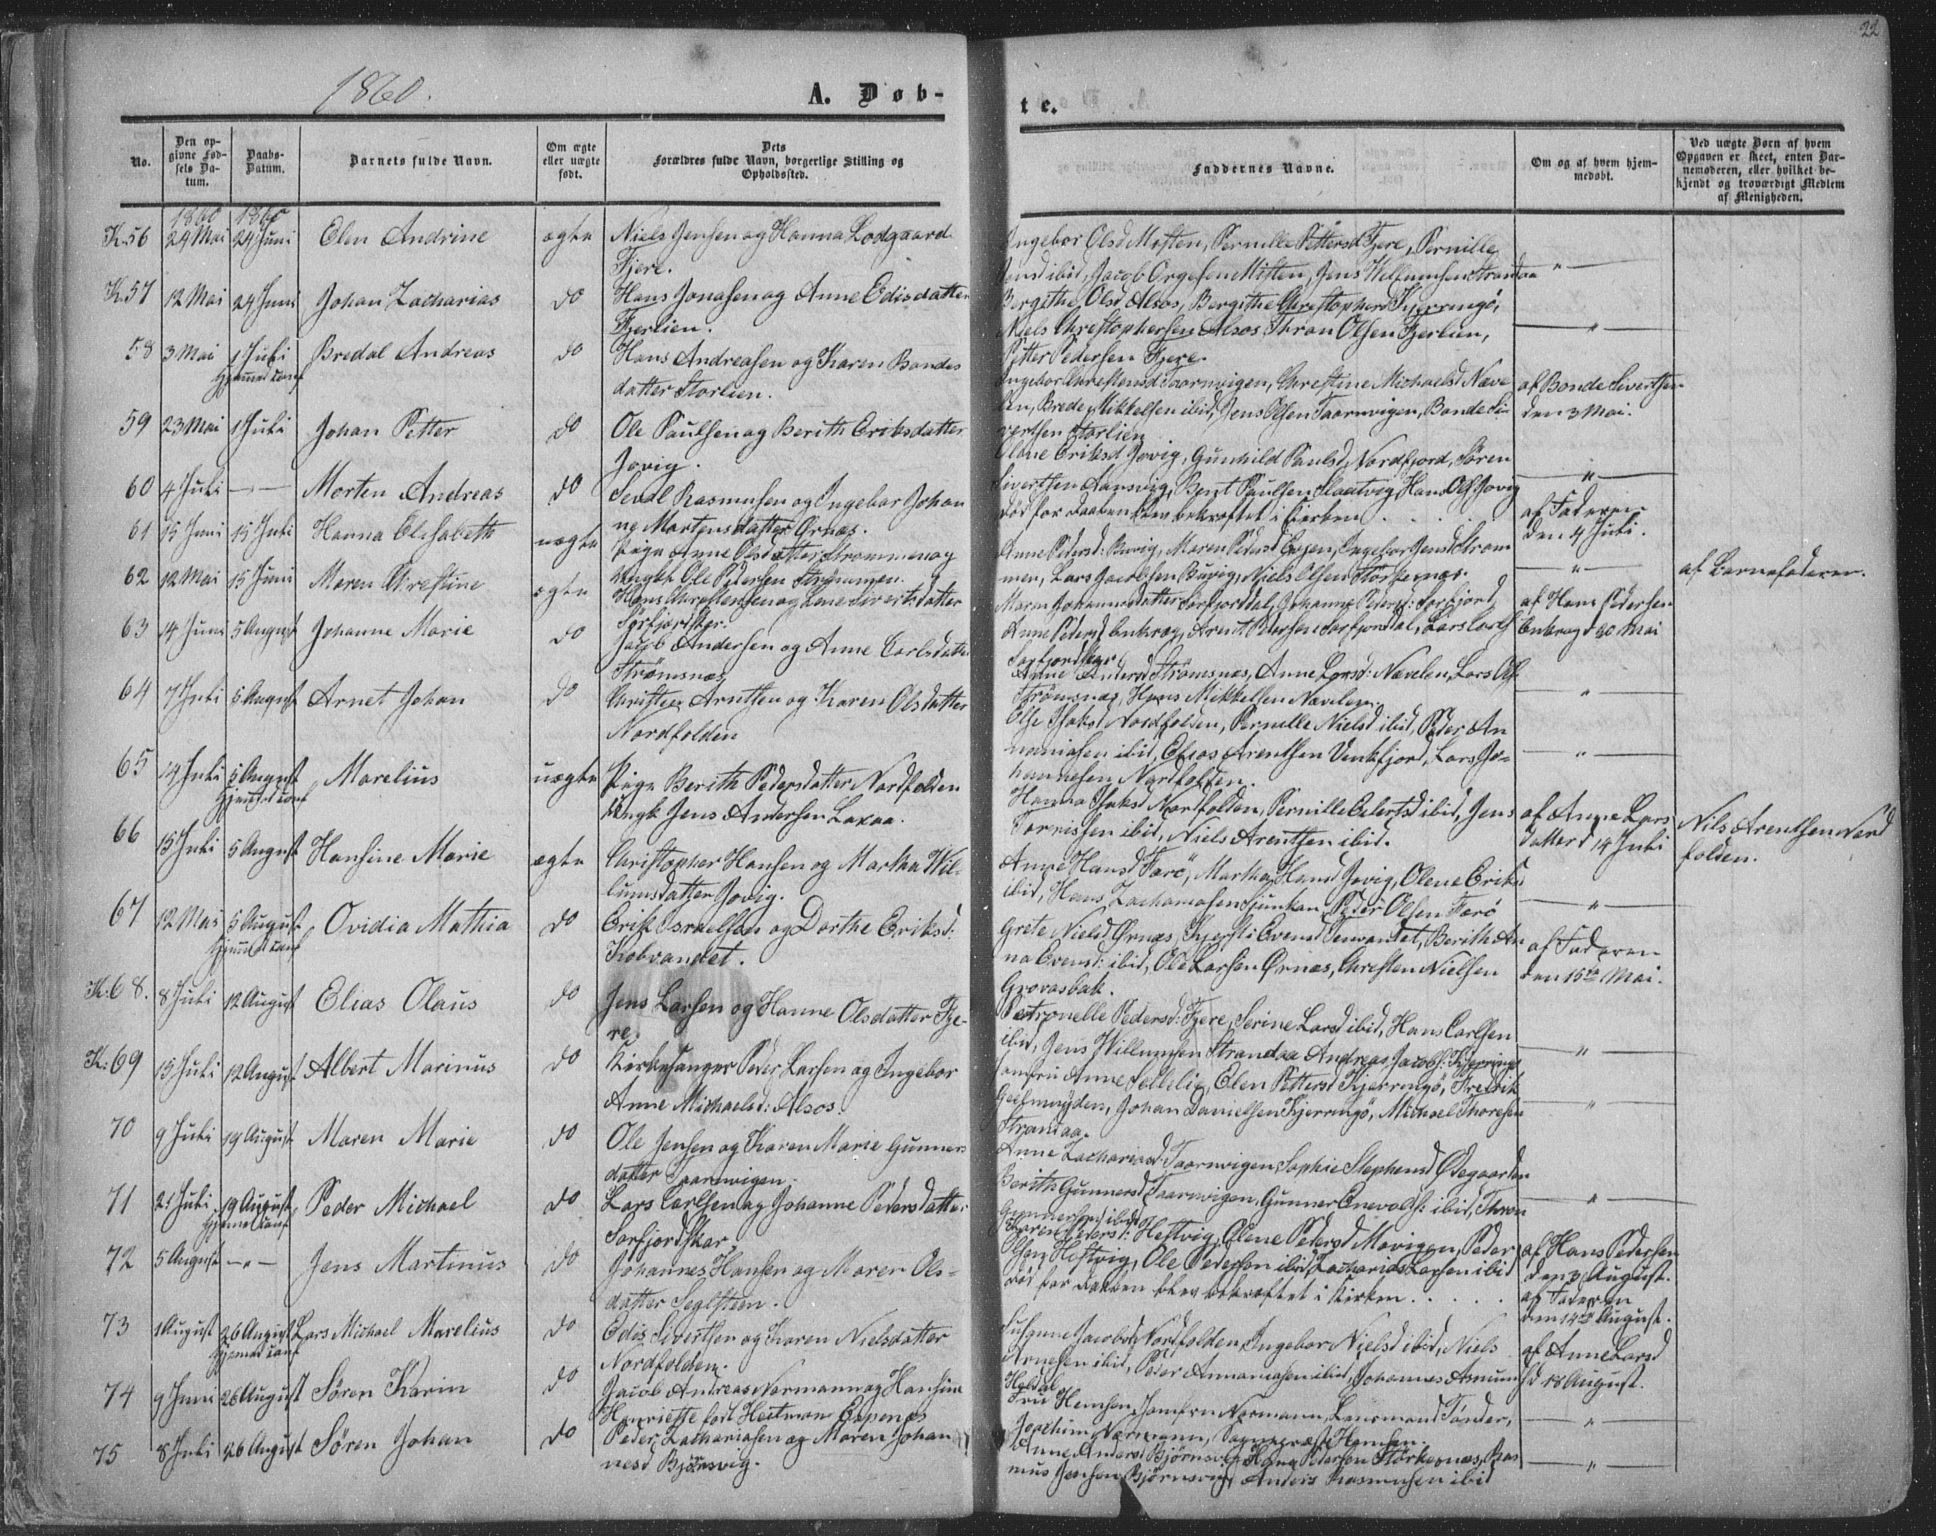 22
1860.
A. Døb-
te.
No.
Den op-
givne Fød-
sels Da-
tum.
Daabs-
Datum.
Barnets fulde Navn.
Om ægte
eller uægte
født.
Dets
Forældres fulde Navn, borgerlige Stilling og
Opholdssted.
Faddernes Navne.
Om og af hvem hjem-
medøbt.
Ved uægte Børn af hvem
Opgaven er skeet, enten Bar-
nemoderen, eller hvilket be-
kjendt og troværdigt Medlem
af Menigheden.
1860 1860
K. 56 24 Mai 24 Juni Elen Andrine ægte Niels Jensen og Hanna Lodgaard
Fjere.
Ingebor Olsd Misten, Pernille Pettersd Fjere, Pernille
Jensd ibid, Jacob Orgesen Misten, Jens Willumsen Strandaa
K. 57 12 Mai 24 Juni Johan Zacharias do Hans Jonasen og Anne Edisdatter
Fjerlien.
Bergithe Olsd Alsos, Bergithe Christophersd Kjerringø,
Niels Christophersen Alsos, Thron Olsen Fjerlien,
Petter Pedersen Fjere.
58 3 Mai 1 Juli Bredal Andreas do Hans Andreasen og Karen Bondes
hjemmedøbt
datter Storlien.
Ingebor Christensd Taarnvigen, Christine Michaelsd Næve
len, Brede Mikkelsen ibid, Jens Olsen Taarnvigen, Bonde Si-
vertsen Storlien
af Bonde Sivertsen
den 3 Mai.
59 23 Mai 1 Juli Johan Petter do Ole Paulsen og Berith Eriksdatter
Jovig.
Olane Eriksd Jovig, Gunhild Paulsd Nordfjord, Søren
Sivertsen Aansvig, Bent Paulsen Slaatvig, Hans Ols Jovig
60 4 Juli Morten Andreas do Seval Rasmusen og Ingebor Johan
ne Martensdatter Ørnæs.
død før Daaben blev bekræftet i Kirken
af Faderen
den 4 Juli.
61 15 Juni 15 Juli Hanna Elisabeth uægte Pige Anne Olsdatter Strømmen og
Ungk. Ole Pedersen Strømmen.
Anne Pedersd: Buvig, Maren Pedersd Evjen, Ingebor Jensd Strøm
men, Lars Jacobsen Buvig, Niels Olsen Størkernæs.
af Barnefaderen.
62 12 Mai 15 Juni Maren Christine ægte Hans Christensen og Lene Sivertsdatter
Sørfjordskar.
Maren Johannesdatter Sørfjorddal, Johanna Pedersd: Sørfjord,
Anne Pedersd Enkrog, Arent Pedersen Sørfjorddal, Lars Carls
Sørfjordskar
af Hans Pedersen
Enkrog d 20 Mai
63 14 Juni 5 August Johanne Marie do Jacob Andersen og Anne Carlsdatter
Strømsnæs
Anne Andersd Strømsnæs, Anne Larsd: Nævelen, Lars Ols
Strømsnæs, Hans Mikkelsen Nævelen.
64 7 Juli 5 August Arnet Johan do Christen Arntsen og Karen Olsdatter
Nordfolden
Else Isaksd Nordfolden, Pernille Nielsd ibid, Peder An
naniasen ibid, Elias Arentsen Vinkfjord, Lars Jo-
hannesen Nordfolden.
65 14 Juli 5 August Marelius uægte Pige Berith Pedersdatter Nordfolden
hjemmedøbt
Ungk Jens Andersen Laxaa.
Hanna Isaksd Nordfolden, Pernille Eilertsd ibid, Jens
Tørrissen ibid, Niels Arentsen ibid.
af Anne Lars
datter d 14 Juli
Nils Arentsen Nord
folden.
66 15 Juli 5 August Hansine Marie ægte Christopher Hansen og Martha Wil-
lumsdatter Jovig.
Anne Hansd Færø, Martha Hansd Jovig, Olene Eriksd
ibid, Hans Zachariasen Sjunkan, Peder Olsen Færø
67 12 Mai 5 August Ovidia Mathia do Erik Israelsen og Dorthe Eriksd:
hjemmedøbt
Kobvandet.
Grete Nielsd Ørnæs, Kjersti Evensd Tenvandet, Berith An
na Evensd: ibid, Ole Larsen Ørnæs, Christen Nielsen
Grovasbak.
af Faderen
den 15de Mai.
K: 68. 8 Juli 12 August Elias Olaus do Jens Larsen og Hanne Olsdatter Fje-
re.
Petronelle Pedersd: Fjere, Serine Larsd ibid, Hans Carlsen
ibid, Jens Willumsen Strandaa, Andreas Jacobs: Kjerringø
K: 69 15 Juli 12 August Albert Marinus do Kirkesanger Peder Larsen og Ingebor
Anne Michaelsd: Alsos.
Jomfru Anne Sellelie, Elen Pettersd Kjerringø, Fredrik
Geilmuyden, Johan Danielsen Kjerringø, Michael Thoresen
Strandaa.
70 9 Juli 19 August Maren Marie do Ole Jensen og Karen Marie Gunners
datter Taarnvigen.
Anne Zachariasd: Taarnvigen, Sophie Stephensd Ødegaarden
Berith Gunnersd Taarnvigen, Gunner Enevolds: ibid, Thron
Gunnersen ibid
71 21 Juli 19 August Peder Michael do Lars Carlsen og Johanne Pedersdatter
hjemmedøbt
Sørfjordskar.
Karen Pedersd: Heftvig, Olene Pedersd Movigen, Peder
Olsen Heftvig, Ole Pedersen ibid, Zacharias Larsen ibid
af Hans Pedersen
den 3 August.
72 5 August Jens Martinus do Johannes Hansen og Maren Ols-
datter Seglsteen.
død før Daaben blev bekræftet i Kirken
af Faderen
den 14de August.
73 1 August 26 August Lars Michael Marelius do Edis Sivertsen og Karen Nielsdatter
hjemmedøbt
Nordfolden.
Susanne Jacobsd Nordfolden, Ingebor Nielsd ibid, Niels
Arnesen ibid, Peder Annaniasen ibid, Johannes Amund
Heldal
af Anne Larsd
d 18 August.
74 9 Juni 26 August Søren Karin do Jacob Andreas Normann og Hansine
Henriette født Heitman Espenæs
Fru Hemsen, Jomfru Normann, Lensmand Tønder,
Joachim Normann, Sogneprest Hemsen.
75 8 Juli 26 August Søren Johan do Peder Zachariasen og Maren Johan
nesd Bjørnsvig.
Anne Andersd Bjørnsvig, Hans Pedersen Størkernæs, Ras
mus Jensen Bjørnsvig, Anders Rasmusen ibid